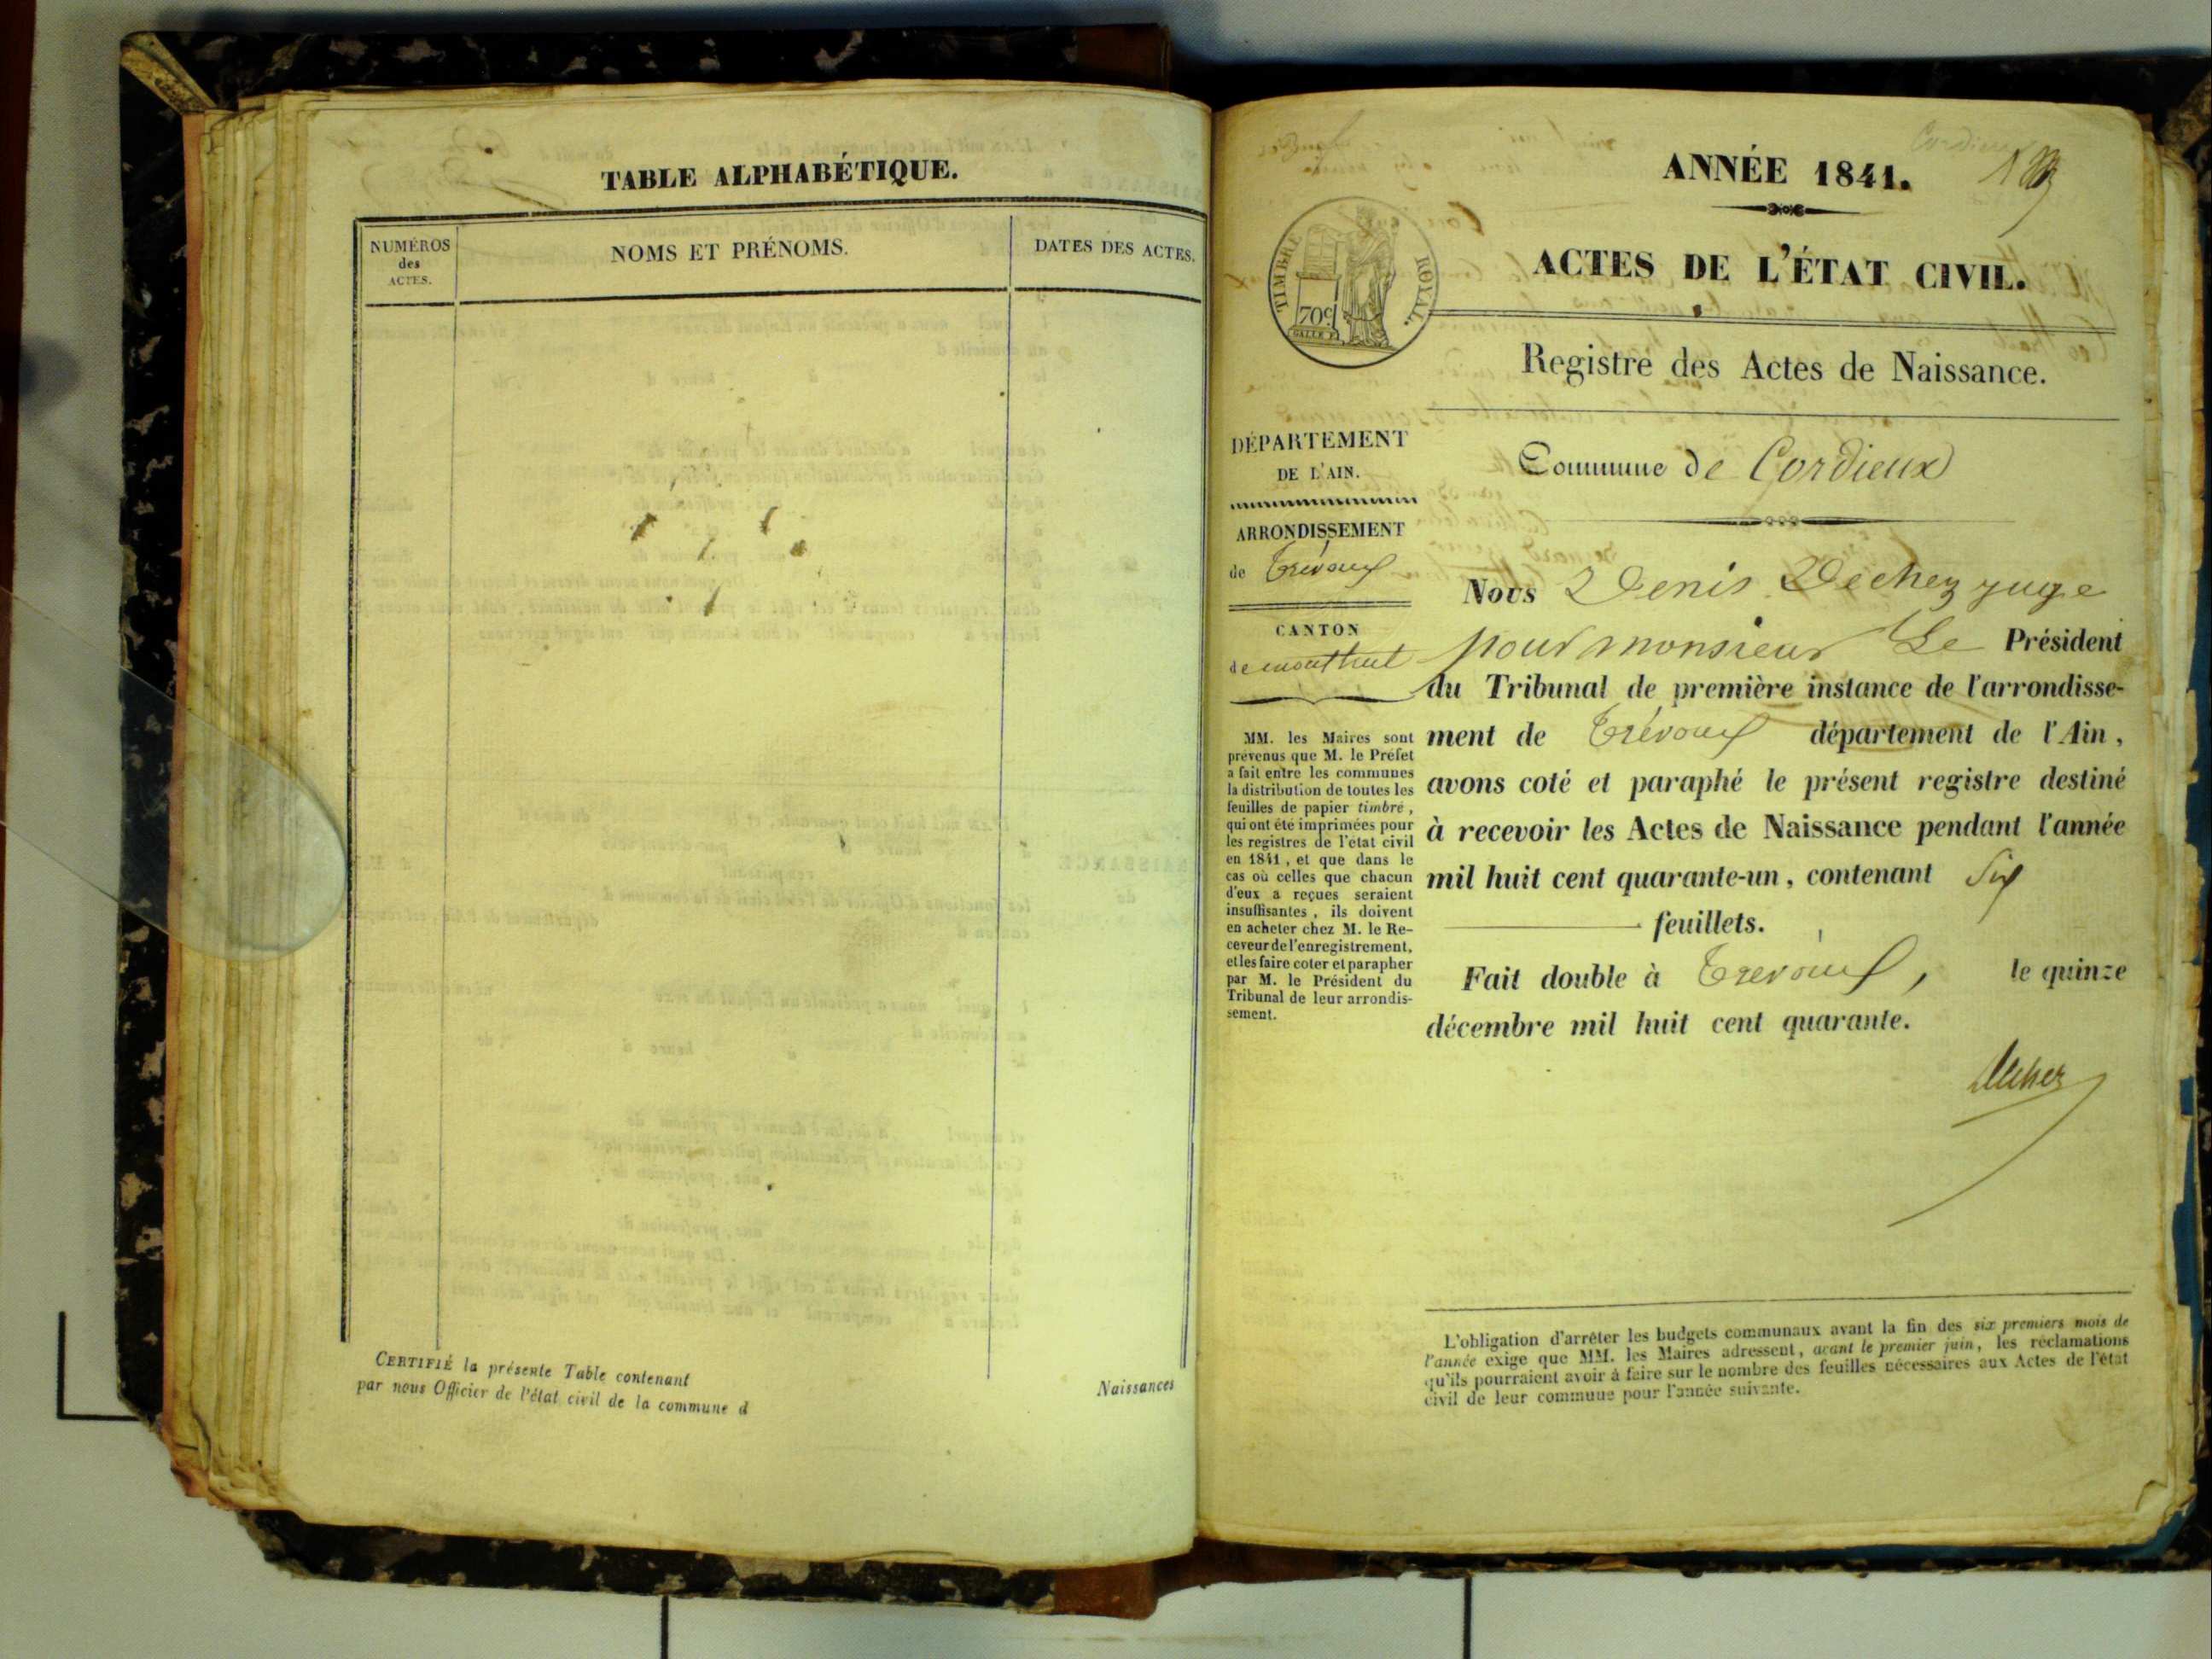 TABLE ALPHABÉTIQUE.
NUMÉROS
des
ACTES.
NOMS ET PRÉNOMS.
DATES DES ACTES.
CERTIFIÉ la présente Table contenant
par nous Officier de l'état civil de la commune d
Naissances
Cordieux
ANNÉE 1841.
ACTES DE L'ÉTAT CIVIL.
TIMBRE ROYAL.
70c
Registre des Actes de Naissance.
DÉPARTEMENT
DE L'AIN.
ARRONDISSEMENT
de Trévoux
CANTON
de montluel
MM. les Maires sont
prévenus que M. le Préfet
a fait entre les communes
la distribution de toutes les
feuilles de papier timbré,
qui ont été imprimées pour
les registres de l'état civil
en 1841, et que dans le
cas où celles que chacun
d'eux a reçues seraient
insuffisantes, ils doivent
en acheter chez M. le Re-
ceveur de l'enregistrement,
et les faire coter et parapher
par M. le Président du
Tribunal de leur arrondis-
sement.
Commune de Cordieux
Nous Denis Dechez juge
pour monsieur Le Président
du Tribunal de première instance de l'arrondisse-
ment de Trévoux département de l'Ain,
avons coté et paraphé le présent registre destiné
à recevoir les Actes de Naissance pendant l'année
mil huit cent quarante-un, contenant Six
feuillets.
Fait double à Trévoux, le quinze
décembre mil huit cent quarante.
Dechez
L'obligation d'arrêter les budgets communaux avant la fin des six premiers mois de
l'année exige que MM. les Maires adressent, avant le premier juin, les réclamations
qu'ils pourraient avoir à faire sur le nombre des feuilles nécessaires aux Actes de l'état
civil de leur commune pour l'année suivante.